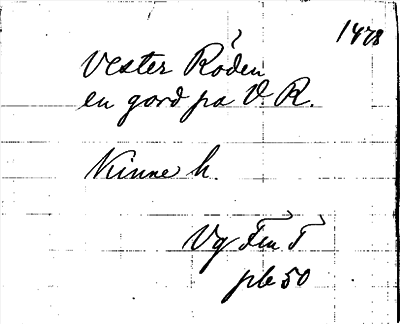 1478
Vester Röden
en gord pa V. R.
Kinne h.
Vg Fru T
pb 50